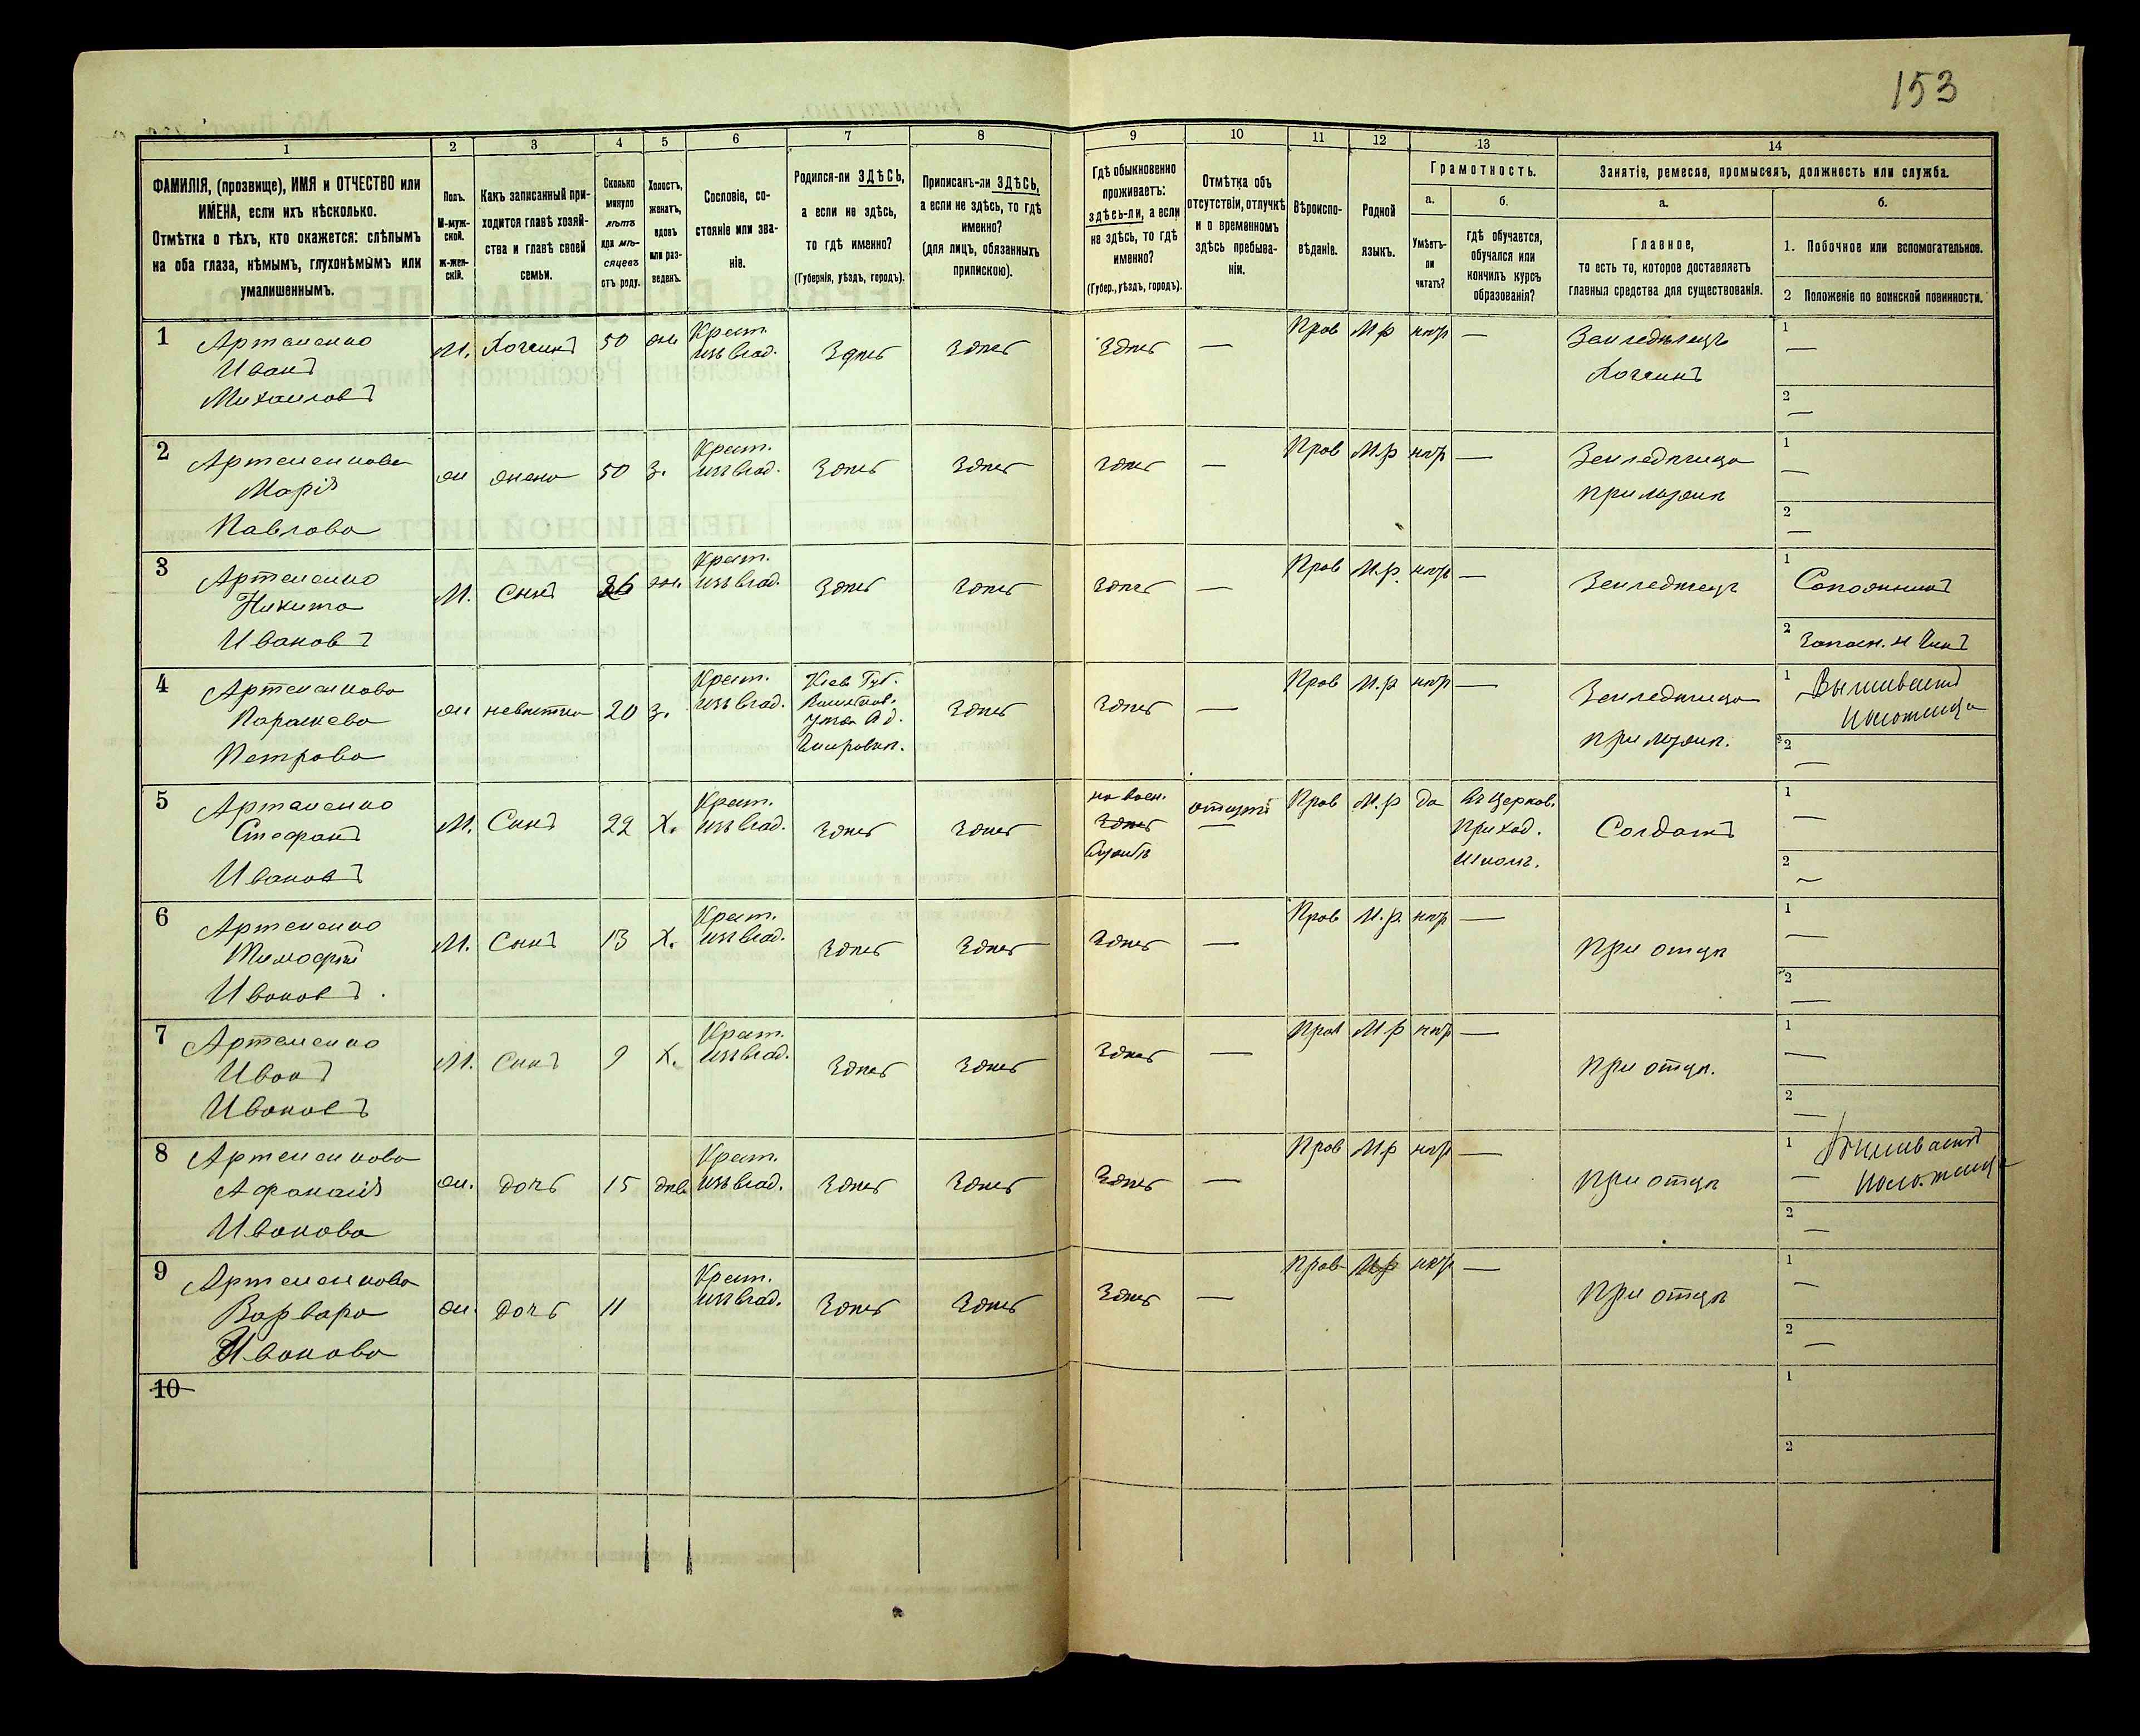 153
1
2
3
4
5
6
7
8
9
10
11
12
13
14
ФАМИЛІЯ, (прозвище), ИМЯ и ОТЧЕСТВО или
ИМЕНА, если ихъ нѣсколько.
Отмѣтка о тѣхъ, кто окажется: слѣпымъ
на оба глаза, нѣмымъ, глухонѣмымъ или
умалишеннымъ.
Полъ.
М-муж-
ской.
Ж-жен-
скій.
Какъ записанный при-
ходится главѣ хозяй-
ства и главѣ своей
семьи.
Сколько
минуло
лѣтъ
или мѣ-
сяцевъ
отъ роду.
Холостъ,
женатъ,
вдовъ
или раз-
веденъ.
Сословіе, со-
стояніе или зва-
ніе.
Родился-ли ЗДѢСЬ,
а если не здѣсь,
то гдѣ именно?
(Губернія, уѣздъ, городъ).
Приписанъ-ли ЗДѢСЬ,
а если не здѣсь, то гдѣ
именно?
(для лицъ, обязанныхъ
припискою).
Гдѣ обыкновенно
проживаетъ:
здѣсь-ли, а если
не здѣсь, то гдѣ
именно?
(Губер., уѣздъ, городъ).
Отмѣтка объ
отсутствіи, отлучкѣ
и о временномъ
здѣсь пребыва-
ніи.
Вѣроиспо-
вѣданіе.
Родной
языкъ.
Грамотность.
а.
Умѣетъ-
ли
читать?
б.
гдѣ обучается,
обучался или
кончилъ курсъ
образованія?
Занятіе, ремесло, промыселъ, должность или служба.
а.
Главное,
то есть то, которое доставляетъ
главныя средства для существованія.
б.
1. Побочное или вспомогательное.
2 Положеніе по воинской повинности.
1 Артеменко
Иванъ
Михаиловъ
М. Хозяинъ 50 жен Крест.
изъ влад. Здѣсь Здѣсь Здѣсь — Пров М р нѣтъ — Земледѣлецъ
Хозяинъ
1 —
2 —
2 Артеменкова
Марія
Павлова
ж жена 50 з. Крест.
изъ влад. Здѣсь Здѣсь Здѣсь — Пров М.р нѣтъ — Земледѣлица
при мужѣ
1 —
2 —
3 Артеменко
Никита
Ивановъ
М. Сынъ 26 жен. Крест.
изъ влад. Здѣсь Здѣсь Здѣсь — Пров М.р. нѣтъ — Земледѣлецъ
1 Сапожникъ
2 Запасн. н Чинъ
4 Артеменкова
Параскева
Петрова
ж невѣстка 20 з. Крест.
изъ влад. Кіев Губ.
Здѣсь Здѣсь — Пров М.р нѣтъ — Земледѣлица
при мужѣ.
1 Вышиваетъ
2 —
5 Артеменко
Стефанъ
Ивановъ
М. Сынъ 22 Х. Крест.
изъ влад. Здѣсь Здѣсь на воен.
Здѣсь
службѣ
— Пров М.р да Въ Церков.
Приход.
Школѣ.
Солдатъ
1 —
2 —
6 Артеменко
Тимофей
Ивановъ.
М. Сынъ 13 Х. Крест.
изъ влад. Здѣсь Здѣсь Здѣсь — Пров М.р. нѣтъ — При отцѣ
1 —
2 —
7 Артеменко
Иванъ
Ивановъ
М. Сынъ 9 Х. Крест.
изъ влад. Здѣсь Здѣсь Здѣсь — Пров М р нѣтъ — При отцѣ.
1 —
2 —
8 Артеменкова
Ивановa
ж. дочь 15 дѣв Крест.
изъ влад. Здѣсь Здѣсь Здѣсь — Пров М.р нѣтъ — При отцѣ
1 — Вышиваетъ
2 —
9 Артеменкова
Варвара
Иванова
ж. дочь 11 Крест.
изъ влад. Здѣсь Здѣсь Здѣсь — Пров М р нѣтъ — При отцѣ
1 —
2 —
10
1
2